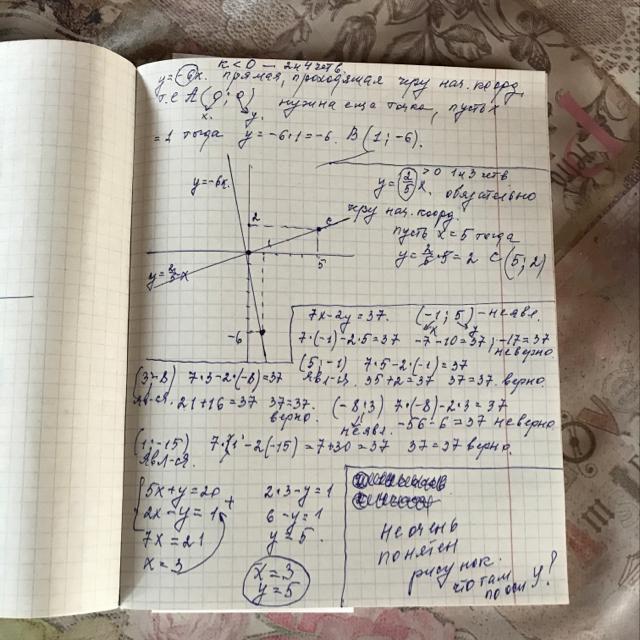 к < 0 — 2и4 четв.
y=-6x. прямая, проходящая чрез нач. коорд,
т.е A(0; 0) нужна еще точка, пусть x
x. y.
=1 тогда y=-6·1=-6. B(1; -6).
y=2/5x. >0 1и3 четв
обязательно
чрез нач. коорд.
пусть x=5 тогда
y=2/5·5=2 C(5; 2)
y=-6x.
2
C
1
5
y=2/5x
-6
7x-2y=37. (-1; 5) - неявл.
x y
7·(-1)-2·5=37 -7-10=37; -17=37
неверно
(5; -1) 7·5-2·(-1)=37
явл-ся. 35+2=37 37=37. верно.
(3; -8) 7·3-2·(-8)=37
яв-ся. 21+16=37 37=37.
верно.
(-8; 3) 7·(-8)-2·3=37
неявл. -56-6=37 неверно
(1; -15) 7·1-2(-15)=7+30=37 37=37 верно.
явл-ся.
5x+y=20
2x-y=1 +
7x=21
x=3
2·3-y=1
6-y=1
y=5.
x=3
y=5
не очень
понятен
рисунок.
что там
по оси y?